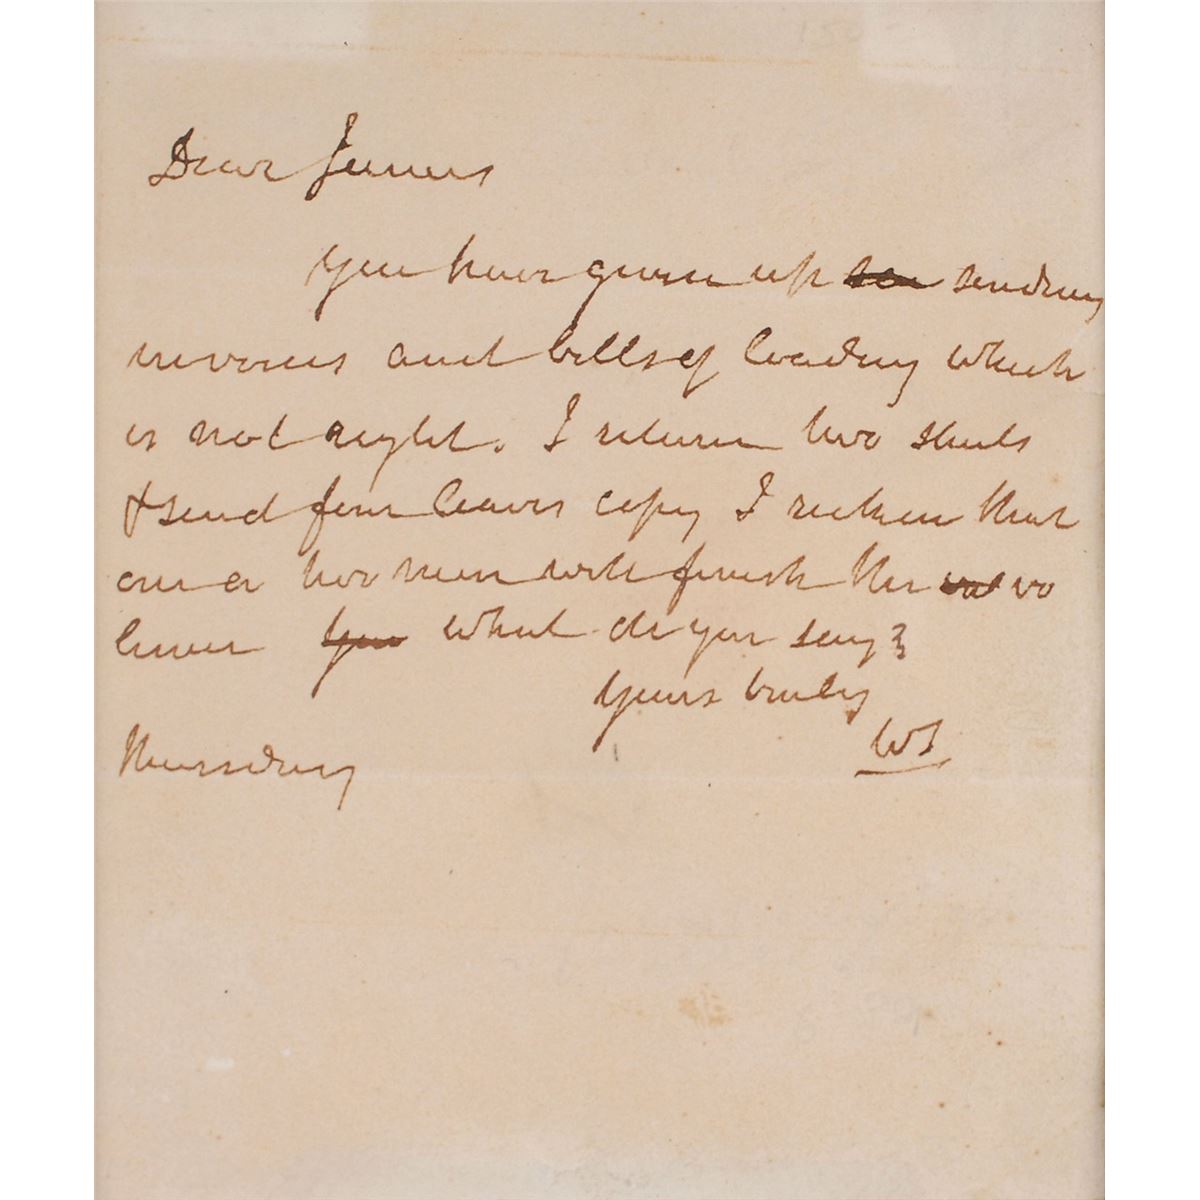 Dear James
You have given up sen sending
invoices and bills of loading which
is not right. I return two sheets
& send four leaves copy I reckon that
one or two more will finish the vol vo
lume You What do you say?
Yours truly
WS
Thursday